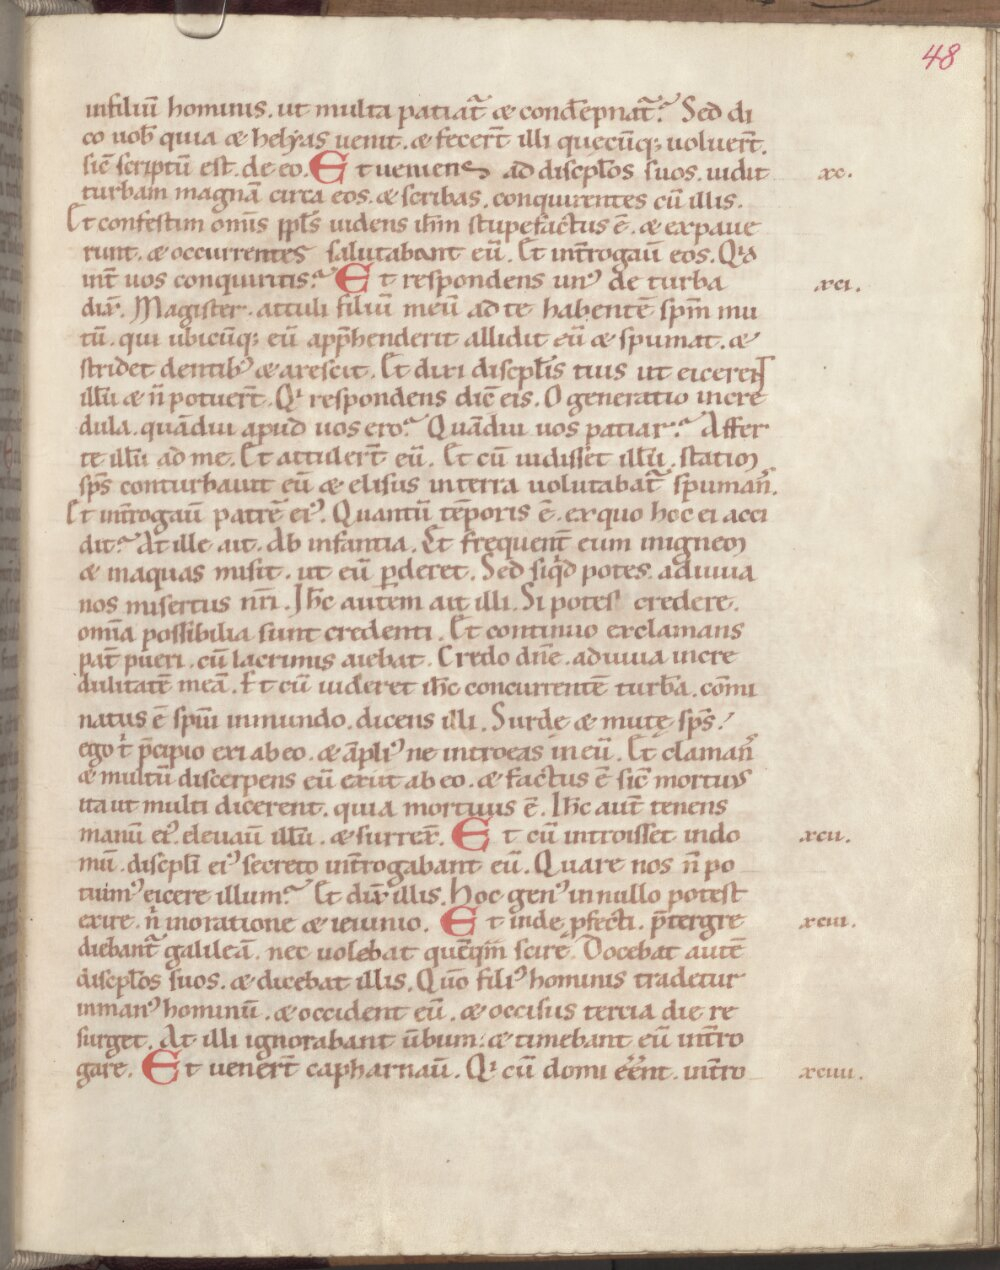 48
infiliū hominis. ut multa patiat᷑ & condēpnat᷑? Sed di
co uob̄ quia & helẏas uenit. & fecer̄t illi quecūq; uoluer̄t.
sic̄ scriptū est. de eo. Et ueniens ad discipl̄os suos. uidit xc.
turbam magnā circa eos. & scribas. conquirentes cū illis.
Et confestim om̄is ppl̄s uidens ih̄m stupefactus ē. & expaue
runt. & occurrentes salutabant eū. Et int̄rogauī eos. Qͥd
int̄ uos conquiritis? Et respondens unꝰ de turba xci.
dix̄. Magister. attuli filiū meū ad te habentē sp̄m mu
tū. qui ubicūq; eū app̄henderit allidit eū & spumat. &
stridet dentibꝰ & arescit. Et dixi discipl̄is tuis ut eicerent
illū & n̄ potuer̄t. Qͥ respondens dic̄ eis. O generatio incre
dula. quādiu apud uos ero? Quādiu uos patiar? Affer
te illū ad me. Et attuler̄t eū. Et cū uidisset illū. statim
sp̄s conturbauit eū & elisus interra uolutabat᷑ spuman̄.
Et int̄rogauī patrē eiꝰ. Quantū tēporis ē. ex quo hoc ei acci
dit? At ille ait. Ab infantia. Et frequent̄ eum inignem
& inaquas misit. ut eū p̄deret. Sed siqͥd potes. adiuua
nos misertus nr̄i. Ih̄c autem ait illi. Si potes credere.
om̄ia possibilia sunt credenti. Et continuo exclamans
pat̄ pueri. cū lacrimis aiebat. Credo dn̄e. adiuua incre
dulitatē meā. Et cū uideret ih̄c concurrentē turbā. cōmi
natus ē sp̄ui inmundo. dicens illi. Surde & mutę sp̄s!
ego t̄ p̄cipio exi ab eo. & āpliꝰ ne introeas in eū. Et claman̄
& multū discerpens eū exiit ab eo. & factus ē sic̄ mortuus
ita ut multi dicerent. quia mortuus ē. Ih̄c aut̄ tenens
manū eiꝰ. eleuauī illū. & surrex̄. Et cū introisset indo xcii.
mū. discipl̄i eiꝰ secreto int̄rogabant eū. Quare nos n̄ po
tuimꝰ eicere illum? Et dix̄ illis. Hoc genꝰ in nullo potest
exire. n̄ inoratione & ieiunio. Et inde p̄fecti. p̄tergre xciii.
diebant᷑ galileā. nec uolebat quēq̄m scire. Docebat autē
discipl̄os suos. & dicebat illis. Qm̄ filiꝰ hominis tradetur
inmanꝰ hominū. & occident eū. & occisus tercia die re
surget. At illi ignorabant ūbum. & timebant eū int̄ro
gare. Et uener̄t capharnaū. Qͥ cū domi eēnt. int̄ro xciiii.